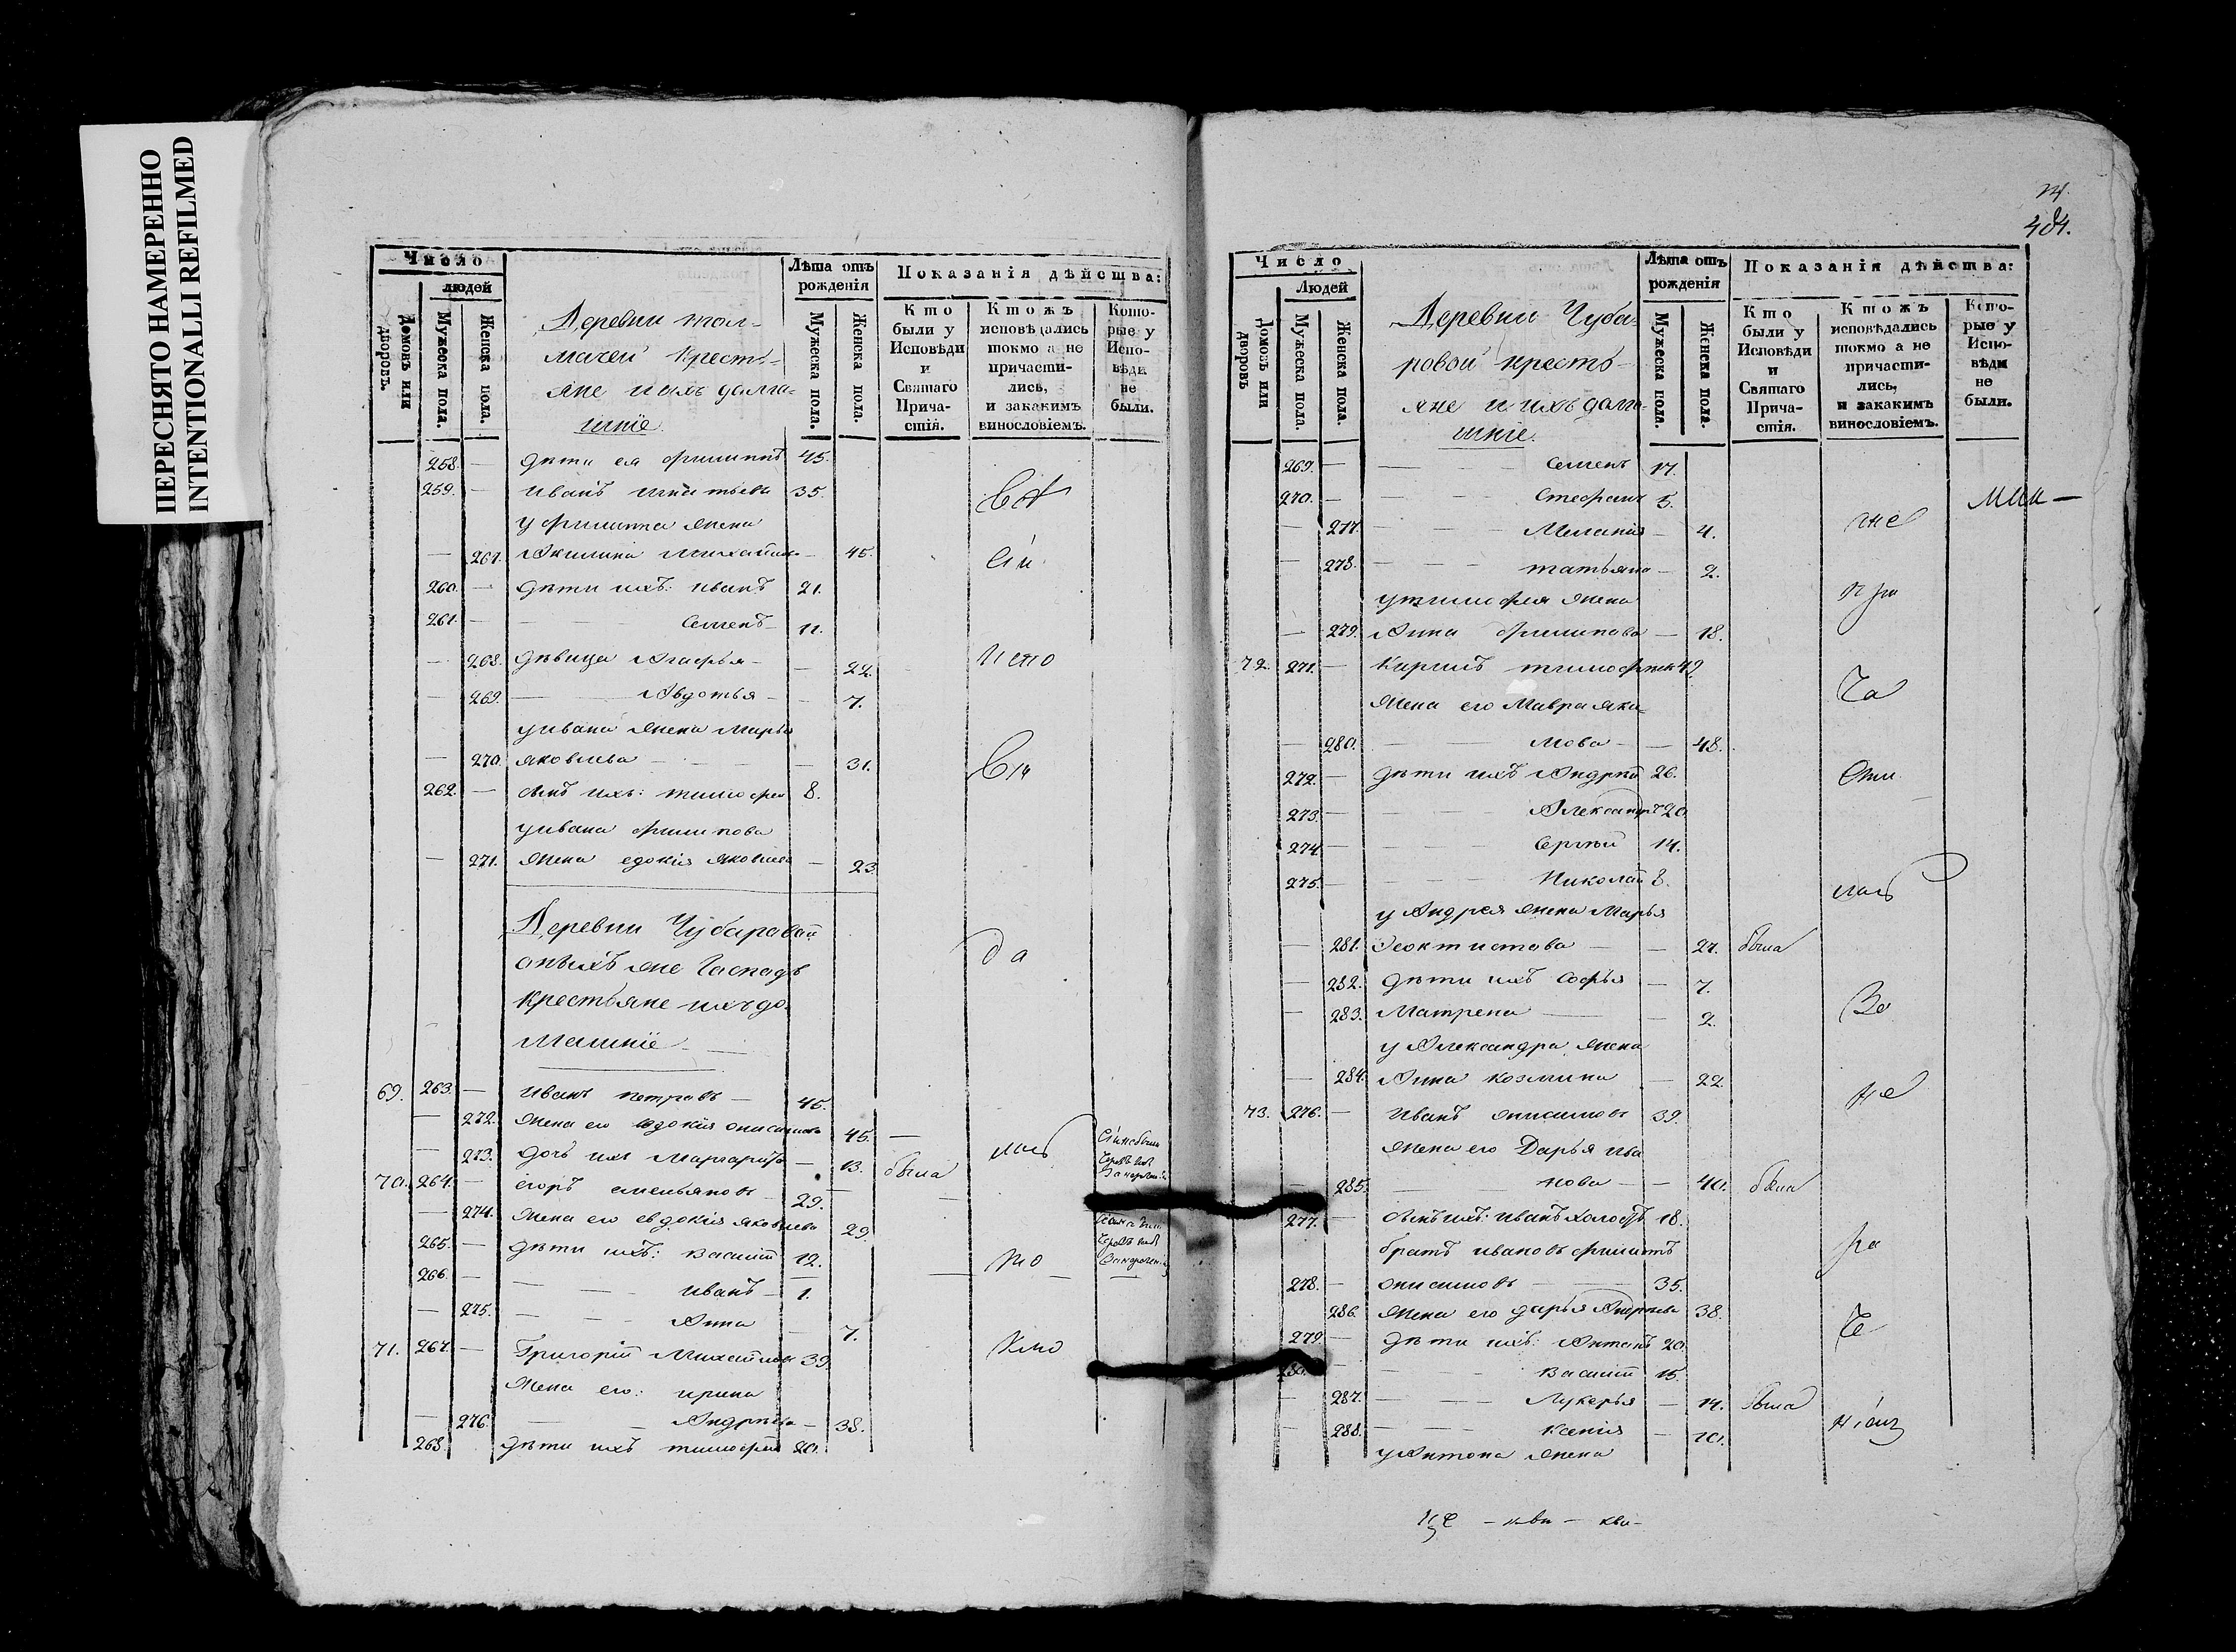 ПЕРЕСНЯТО НАМЕРЕННО
INTENTIONALLI REFILMED
Число
людей
Домовъ или дворовъ.
Мужеска пола.
Женска пола.
Деревни тол-
мачей кресть-
яне и ихъ дома-
шніе.
Лѣта отъ рожденія
Мужеска пола.
Женска пола.
Показанія дѣйства:
Кто были у Исповѣди и Святаго Прича-стія.
Ктожъ исповѣдались токмо а не причасти-лись, и закакимъ винословіемъ.
Кото-рые у Испо-вѣди не были.
258. — дѣти ея Филиппъ 45.
259. — Иванъ 35.
у Филиппа жена
— 267. Акилина — 45.
260. — дѣти ихъ: Иванъ 21.
261. — Семенъ 11.
— 268. дѣвица Агафья — 22.
— 269. — Авдотья — 7.
у Ивана жена Марья
— 270. Яковлева — 31.
262. — сынъ ихъ: Тимофей 8.
у Ивана Филипова
— 271. жена Едокія Яковлева — 23.
Деревни Чубаравой
крестьяне ихъ до-
машніе
69. 263. — Иванъ Петровъ — 45.
— 272. жена его Едокія — 45. —
— 273. дочь ихъ Маргарита — 13. была
70. 264. — Егоръ Емельяновъ 29. —
— 274. жена его Евдокія Яковлева 29.
265. — дѣти ихъ: Василій 12.
266. — Иванъ — 1.
— 275. — Анна — 7.
71. 267. — Григорій Михайловъ 39.
жена его: Ирина
— 276. — Андреева — 38.
268. дѣти ихъ Тимофей 20.
да
484.
Число
Людей
Домовъ или дворовъ
Мужеска пола.
Женска пола.
Деревни Чуба-
ровой кресть-
яне и ихъ дома-
шніе.
Лѣта отъ рожденія
Мужеска пола.
Женска пола.
Показанія дѣйства:
Кто были у Исповѣди и Святаго Прича-стія.
Ктожъ исповѣдались токмо а не причасти-лись, и закакимъ винословіемъ.
Кото-рые у Испо-вѣди не были.
269. — Семенъ 17.
270. — Стефанъ 5.
— 277. — Меланія — 4.
— 278. — Татьяна — 2.
у Тимофея жена
— 279. Анна Филипова — 18.
72. 271. — Кирилъ 42
жена его Мавра Яки-
— 280. — мова — — 48.
272. — дѣти ихъ Андрей 26.
273. — Александръ 20.
274. — Сергѣй 14.
275. — Николай 8.
у Андрея жена Марья
— 281. Феоктистова — — 27. была
— 282. дѣти ихъ Софья — 7.
— 283. Матрена — — 2.
у Александра жена
— 284. Анна Козмина — 22.
73. 276. — Иванъ Анисимовъ 39.
жена его Дарья Ива
— 285. — нова — — 40. была
277. — сынъ ихъ: Иванъ холостъ 18.
братъ Ивановъ Филиппъ
278. — Онисимовъ — 35.
286. жена его Дарья Андреева 38.
279. — дѣти ихъ: Антонъ 20.
280. — Василій 15.
— 287. — Лукерья — 14. была
— 288. — Ксенія — 10.
у Антона жена